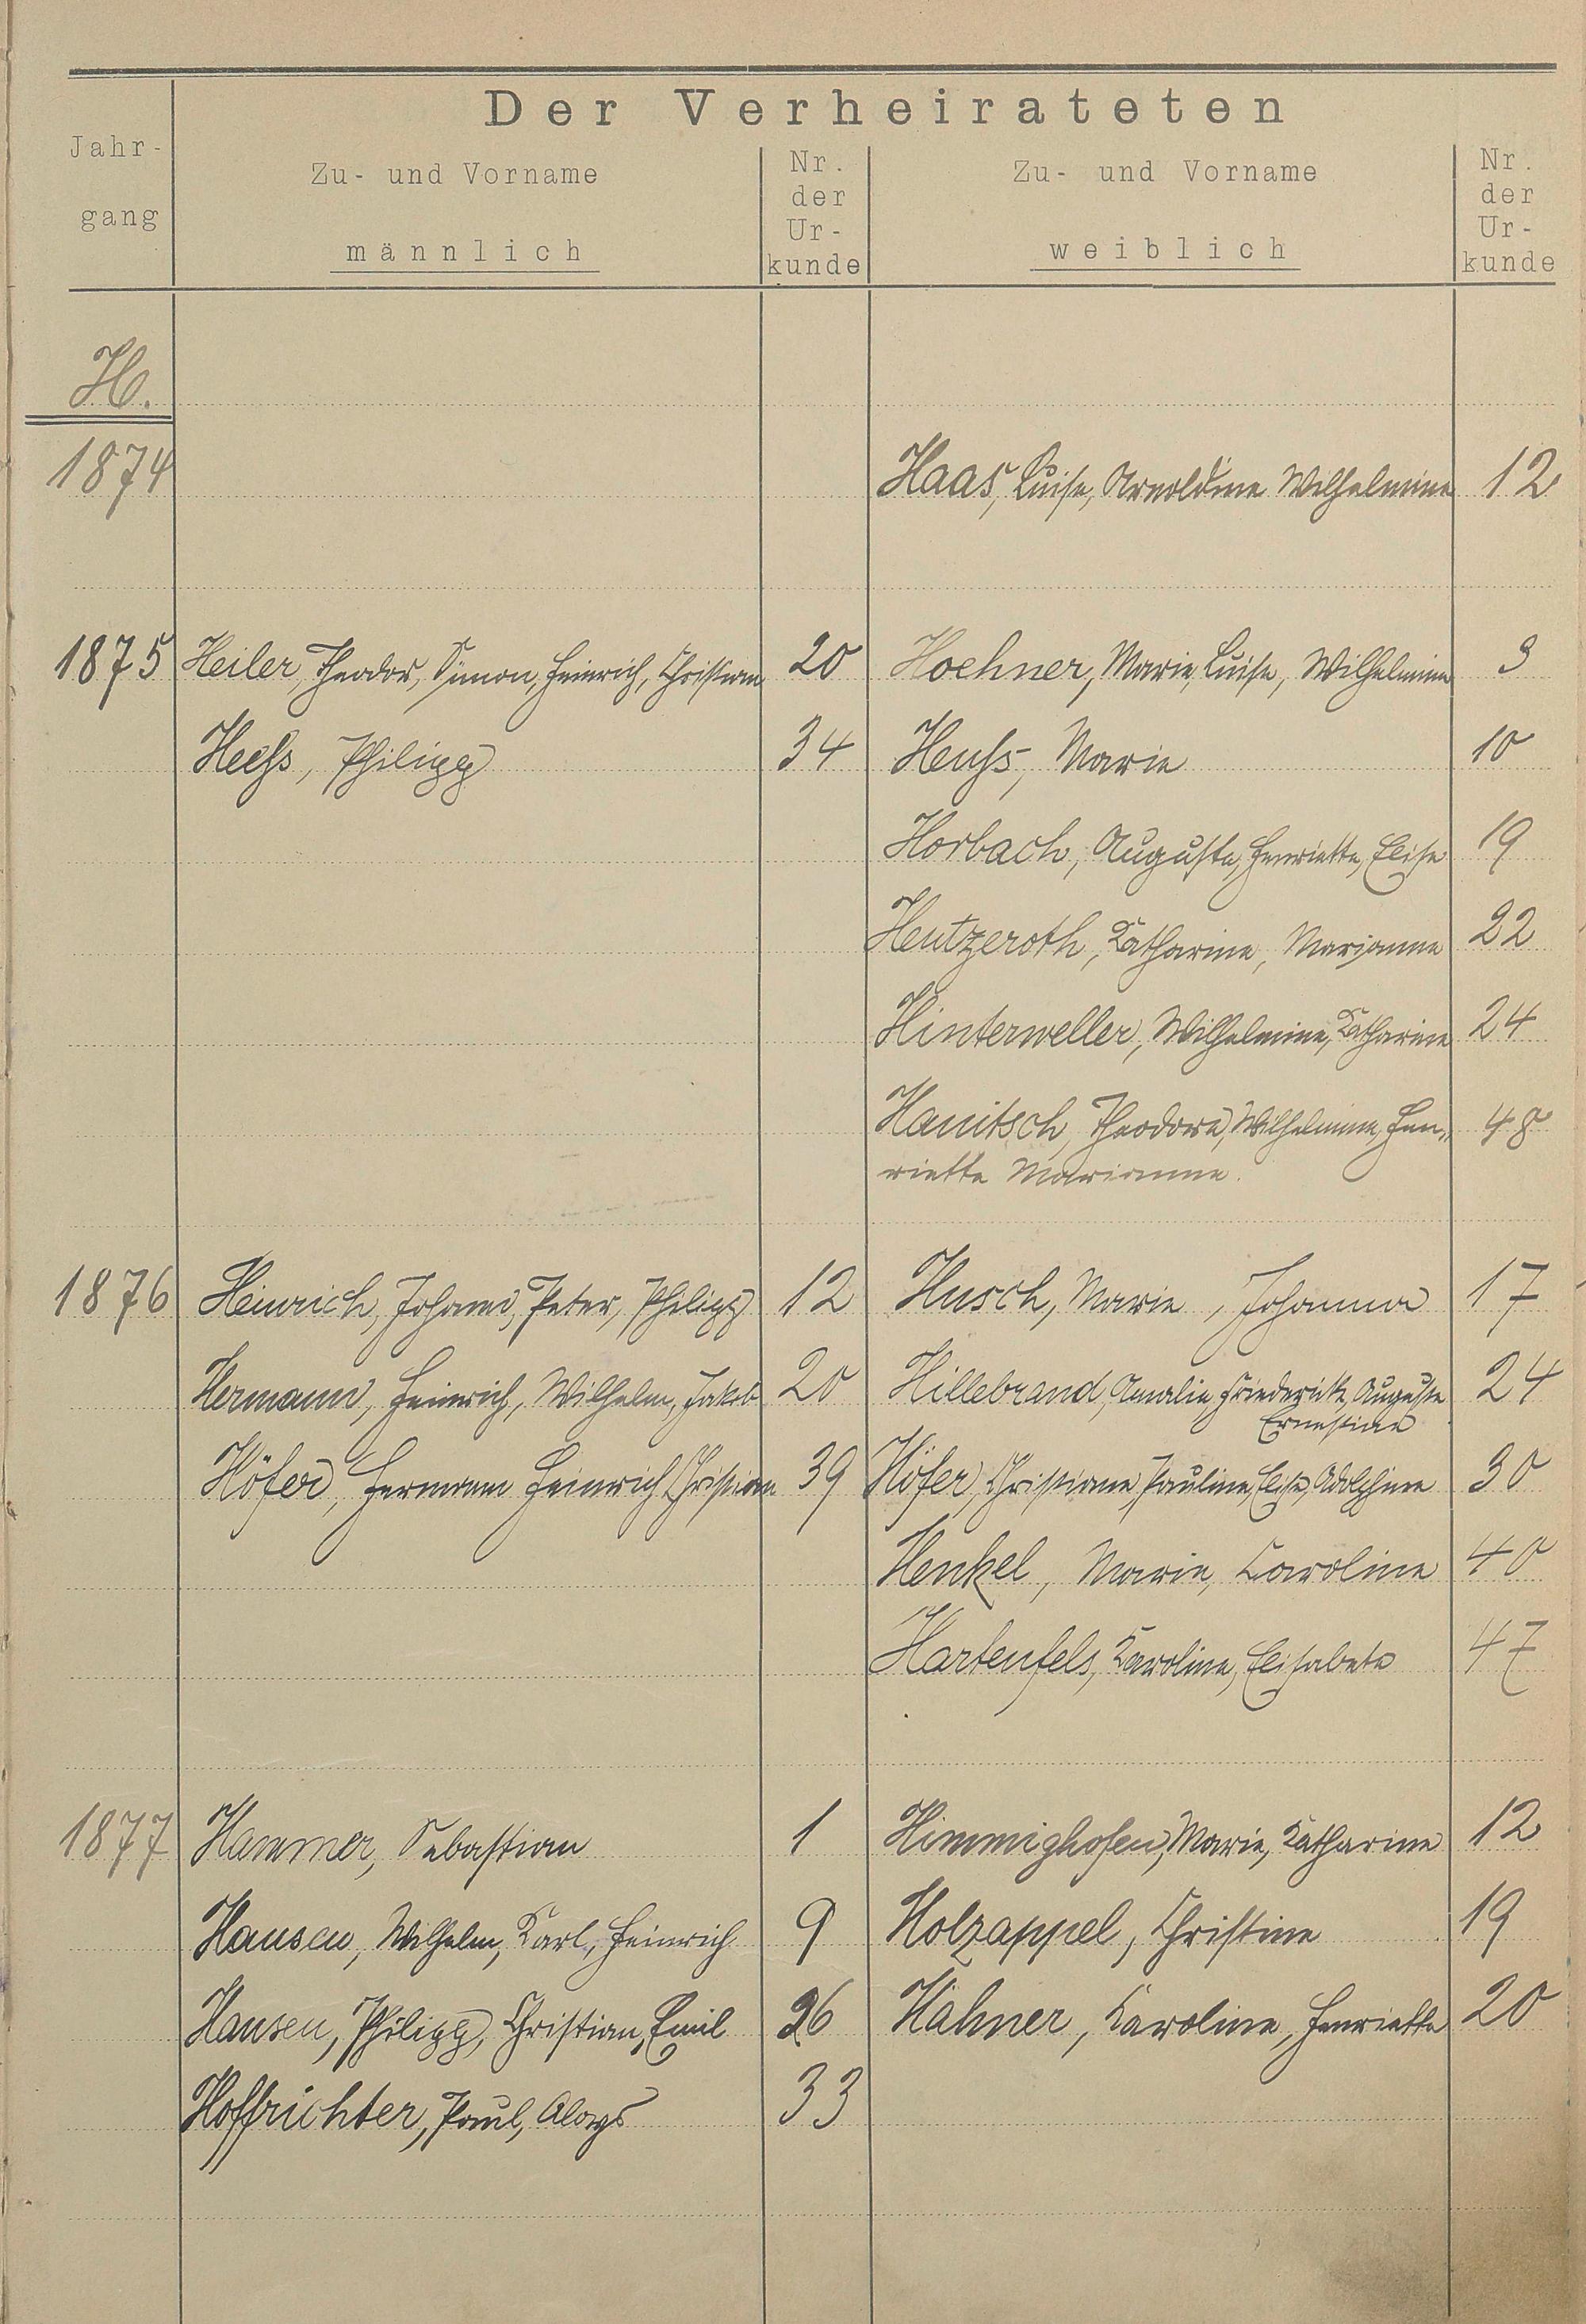 Der Verheirateten
Jahr-
gang
Zu- und Vorname
männlich
Nr.
der
Ur-
kunde
Zu- und Vorname
weiblich
Nr.
der
Ur-
kunde
H.
1874 Haas, Luise, Arnoldine Wilhelmine 12
1875 Heiler, Theodor, Simon, Heinrich, Christian 20 Hoehner, Marie, Luise, Wilhelmine 3
Heeß, Philipp 34 Heuß, Marie 10
Horbach, Auguste, Henriette, Elise 19
Hentzeroth, Katharine, Marianne 22
Hinterweller, Wilhelmine, Katharine 24
Hanitsch, Theodora, Wilhelmine, Hen„ 48
riette Marianne.
1876 Heinrich, Johann, Peter, Philipp 12 Husch, Marie, Johanna 17
Hermann, Heinrich, Wilhelm, Jakob 20 Hillebrand, Amalie, Friederike, Auguste 24
Ernestine
Höfer, Hermann Heinrich Christian 39 Höfer, Christiane, Pauline, Elise, Adolphine 30
Henkel, Marie, Caroline 40
Hartenfels, Karoline, Elisabeta 47
1877 Hammer, Sebastian 1 Himmighofen, Marie, Katharine 12
Hansen, Wilhelm, Karl, Heinrich 9 Holzappel, Christine 19
Hansen, Philipp, Christian, Emil 26 Hähner, Karoline, Henriette 20
Hoffrichter, Paul, Aloys 33